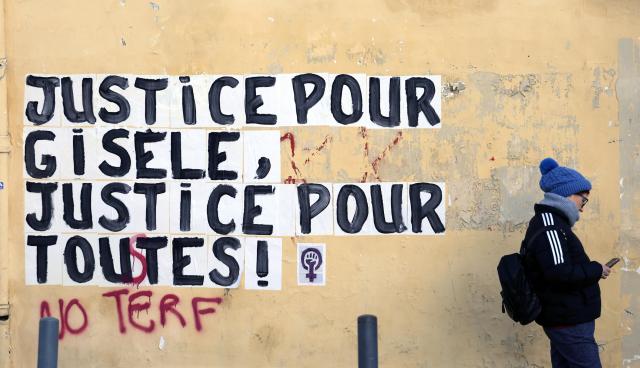 JUSTICE POUR
GISÈLE,
JUSTICE POUR
TOUSTES!
NO TERF